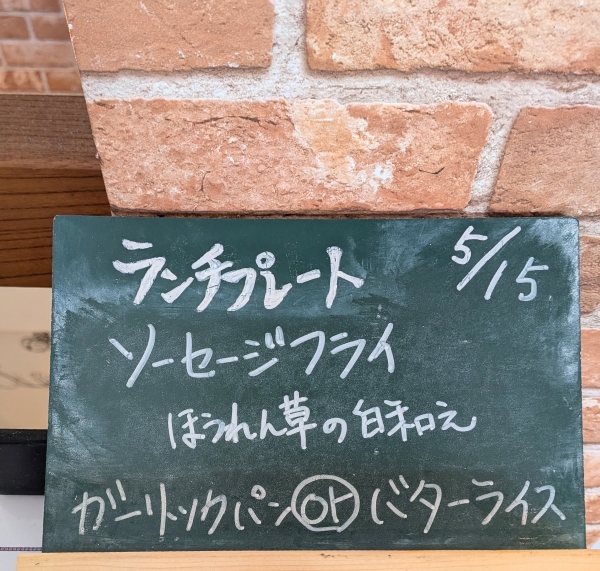 ランチプレート 5/15
ソーセージフライ
ほうれん草の白和え
ガーリックパン or バターライス